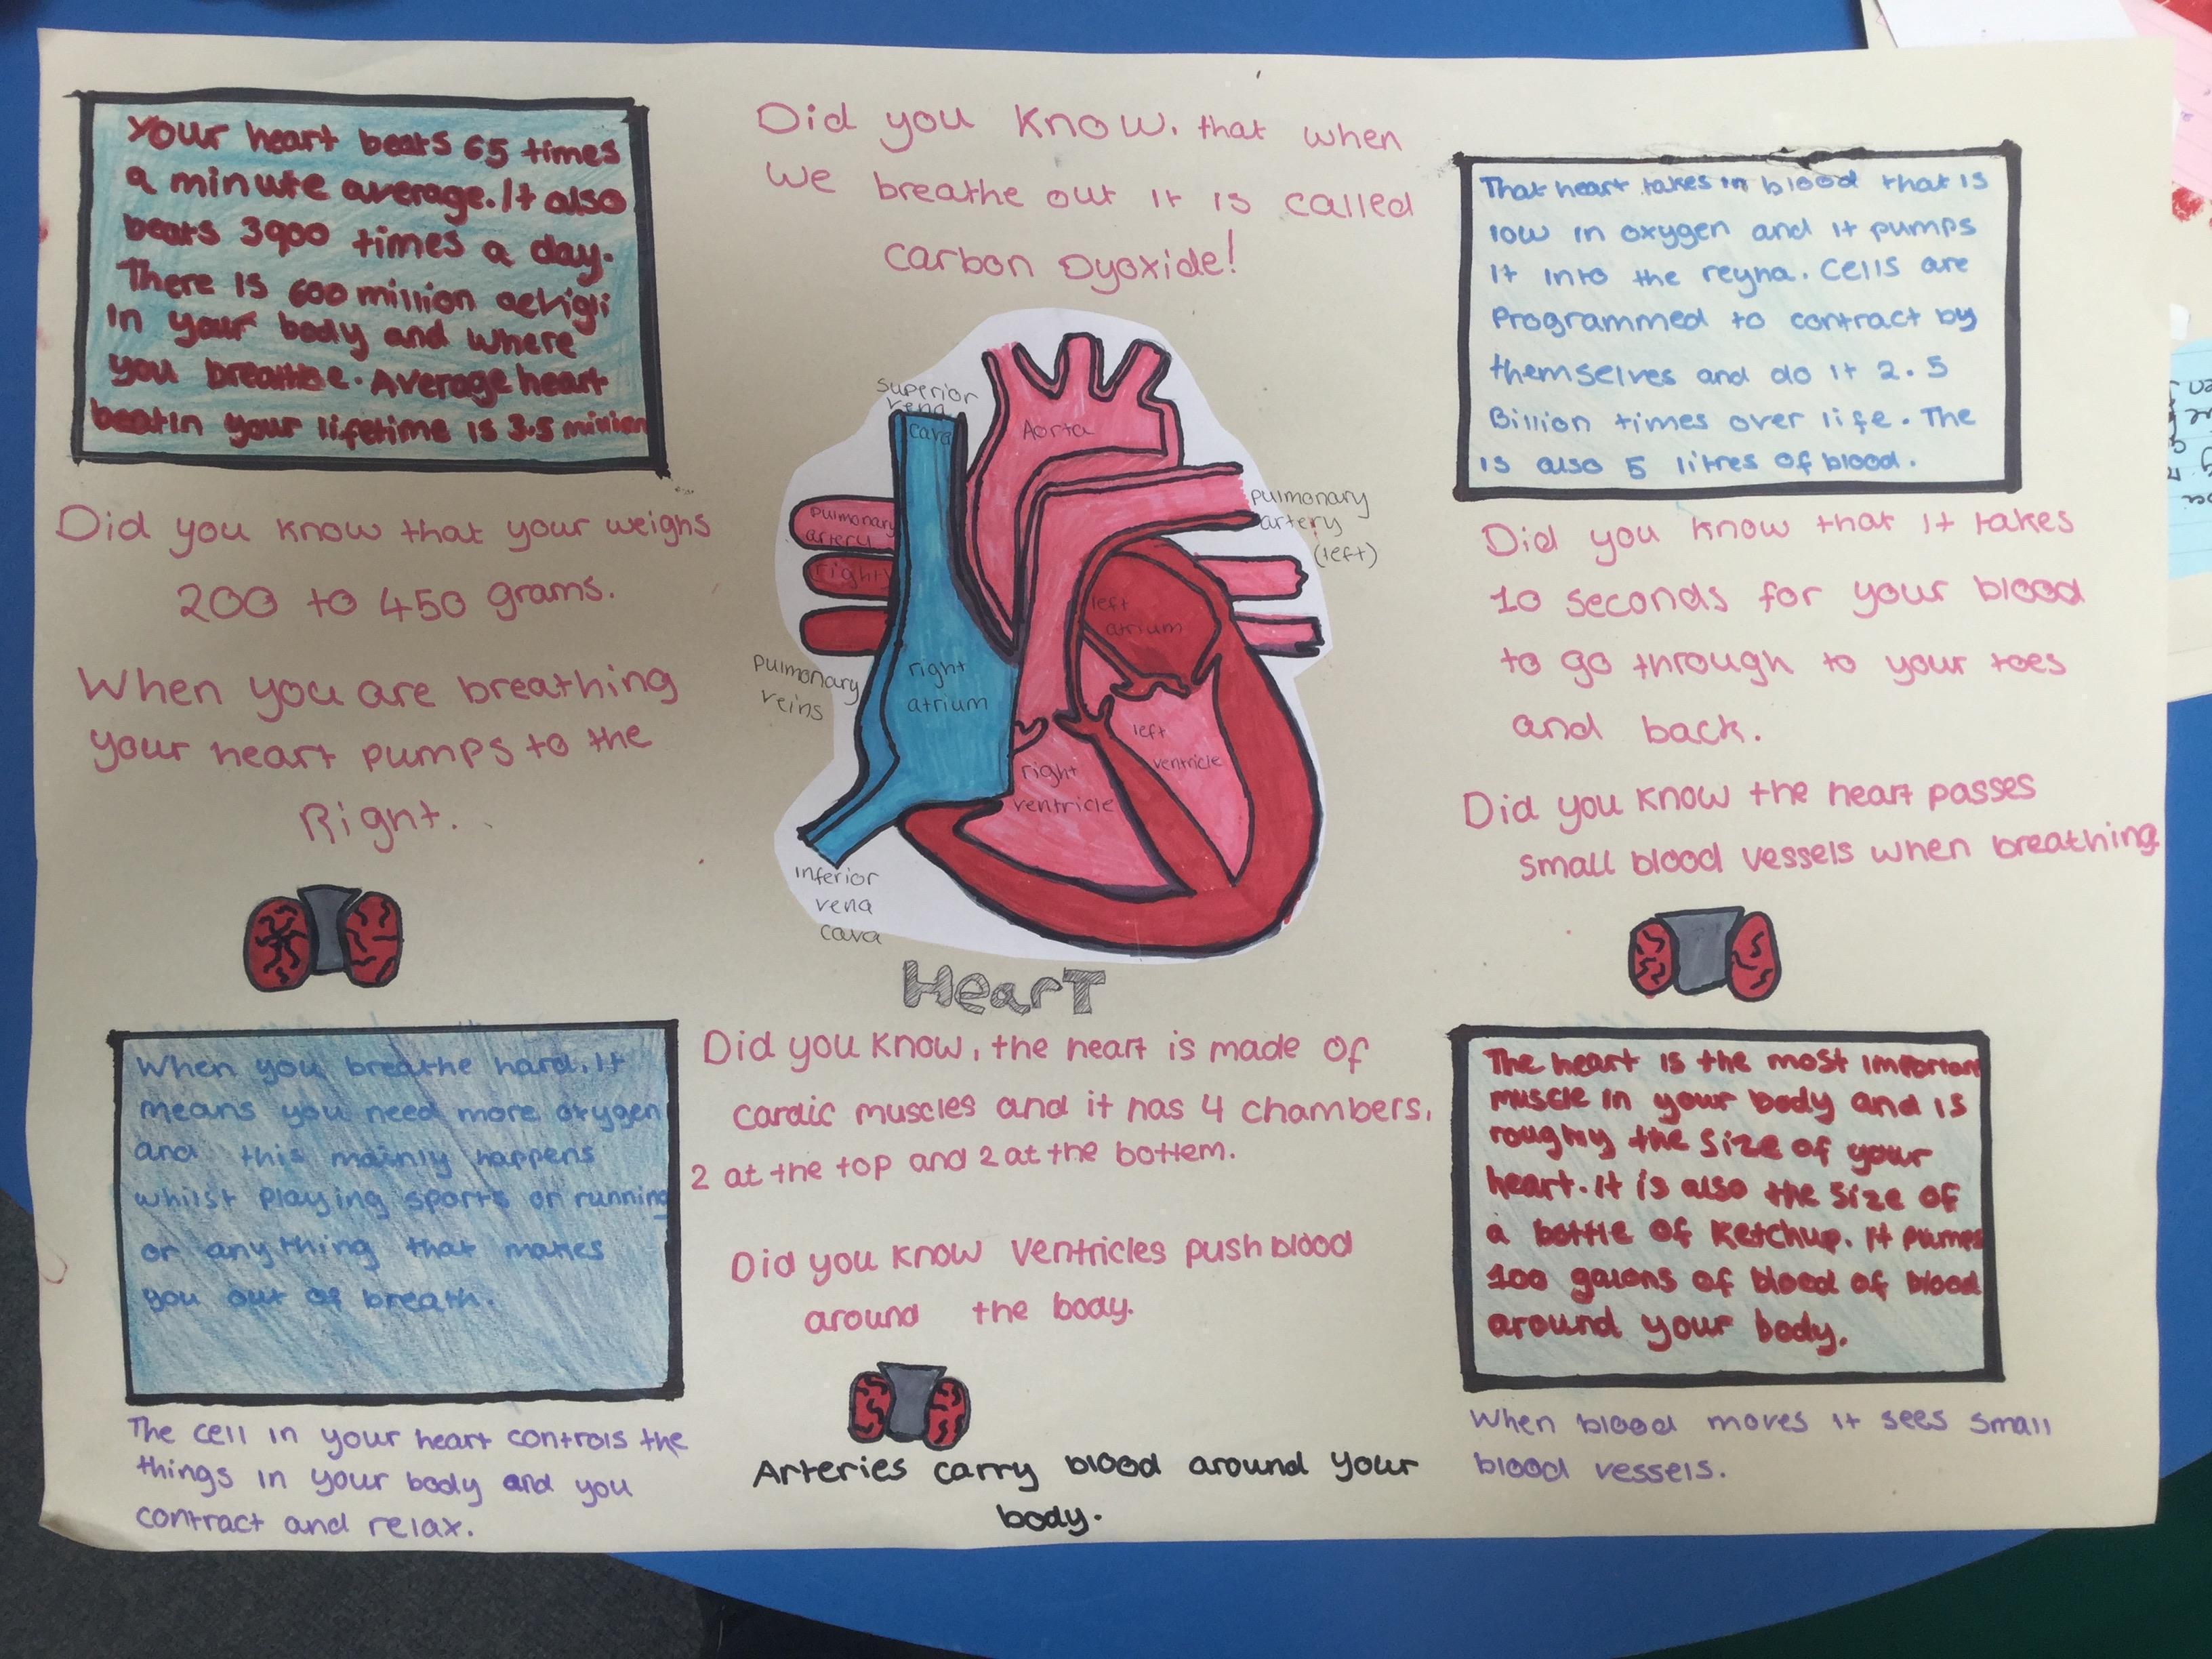 Your heart beats 65 times
a minute average. It also
beats 3900 times a day.
There is 600 million
in your body and where
you breathe. Average heart
beatin your lifetime is 3.5 million
Did you know that your weighs
200 to 450 grams.
When you are breathing
your heart pumps to the
Right.
When you breathe hard, it
means you need more oxygen
and this mainly happens
whilst playing sports or running
or anything that makes
you out of breath.
The cell in your heart controls the
things in your body and you
contract and relax.
Did you know, that when
we breathe out it is called
carbon Dyoxide!
superior
vena
cava
Aorta
pulmonary
artery
right
pulmonary
artery
(left)
left
atrium
pulmonary
veins
right
atrium
left
ventricle
right
ventricle
inferior
vena
cava
HearT
Did you know, the heart is made of
cardic muscles and it has 4 chambers,
2 at the top and 2 at the bottem.
Did you know ventricles push blood
around the body.
Arteries carry blood around your
body.
That heart takes in blood that is
low in oxygen and it pumps
it into the reyna. Cells are
Programmed to contract by
themselves and do it 2.5
Billion times over life. The
is also 5 litres of blood.
Did you know that it takes
10 seconds for your blood
to go through to your toes
and back.
Did you know the heart passes
small blood vessels when breathing
The heart is the most important
muscle in your body and is
roughly the size of your
heart. It is also the size of
a bottle of ketchup. It pumps
100 galons of blood of blood
around your body.
When blood moves it sees small
blood vessels.